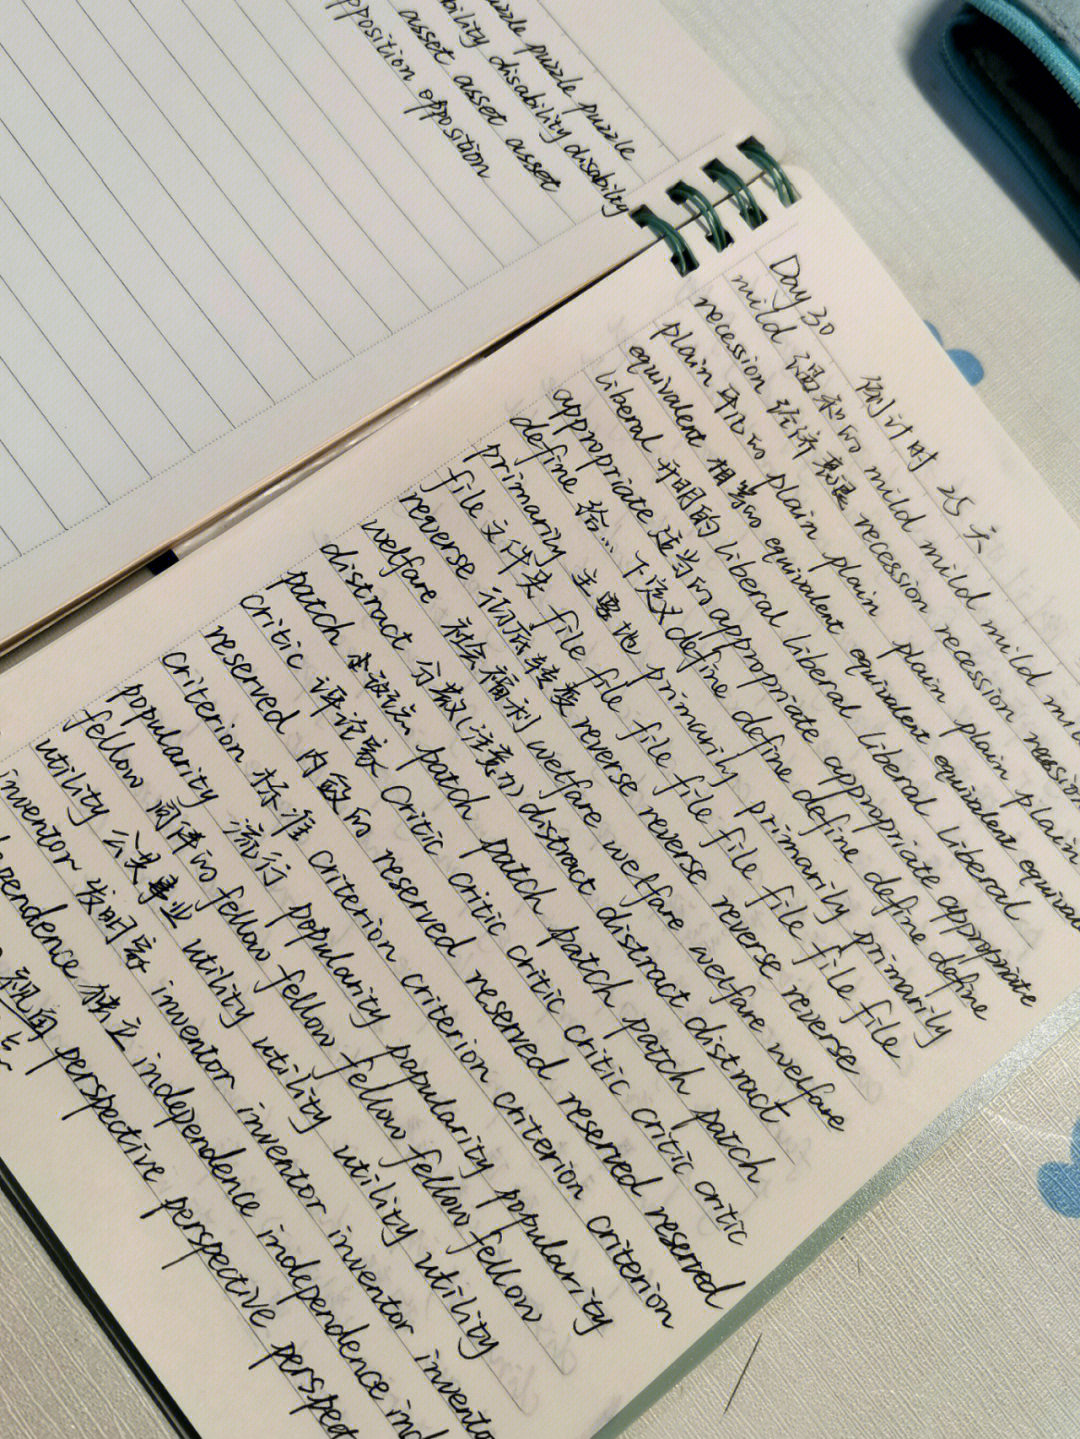 puzzle puzzle
disability disability
asset asset asset
opposition opposition
Day 30 倒计时 25天
mild 温和的 mild mild mild mild
recession 经济衰退 recession recession recession
plain 平凡的 plain plain plain plain plain
equivalent 相等的 equivalent equivalent equivalent
liberal 开明的 liberal liberal liberal liberal
appropriate 适当的 appropriate appropriate appropriate
define 给…下定义 define define define define
primarily 主要地 primarily primarily primarily
file 文件夹 file file file file file file file
reverse 彻底转变 reverse reverse reverse reverse
welfare 社会福利 welfare welfare welfare welfare
distract 分散(注意力) distract distract distract
patch patch patch patch patch patch
critic 评论家 critic critic critic critic critic critic
reserved 内敛的 reserved reserved reserved reserved
criterion 标准 criterion criterion criterion criterion
popularity 流行 popularity popularity popularity
fellow 同伴的 fellow fellow fellow fellow fellow
utility 公共事业 utility utility utility utility
inventor 发明家 inventor inventor inventor
independence 独立 independence independence
perspective perspective